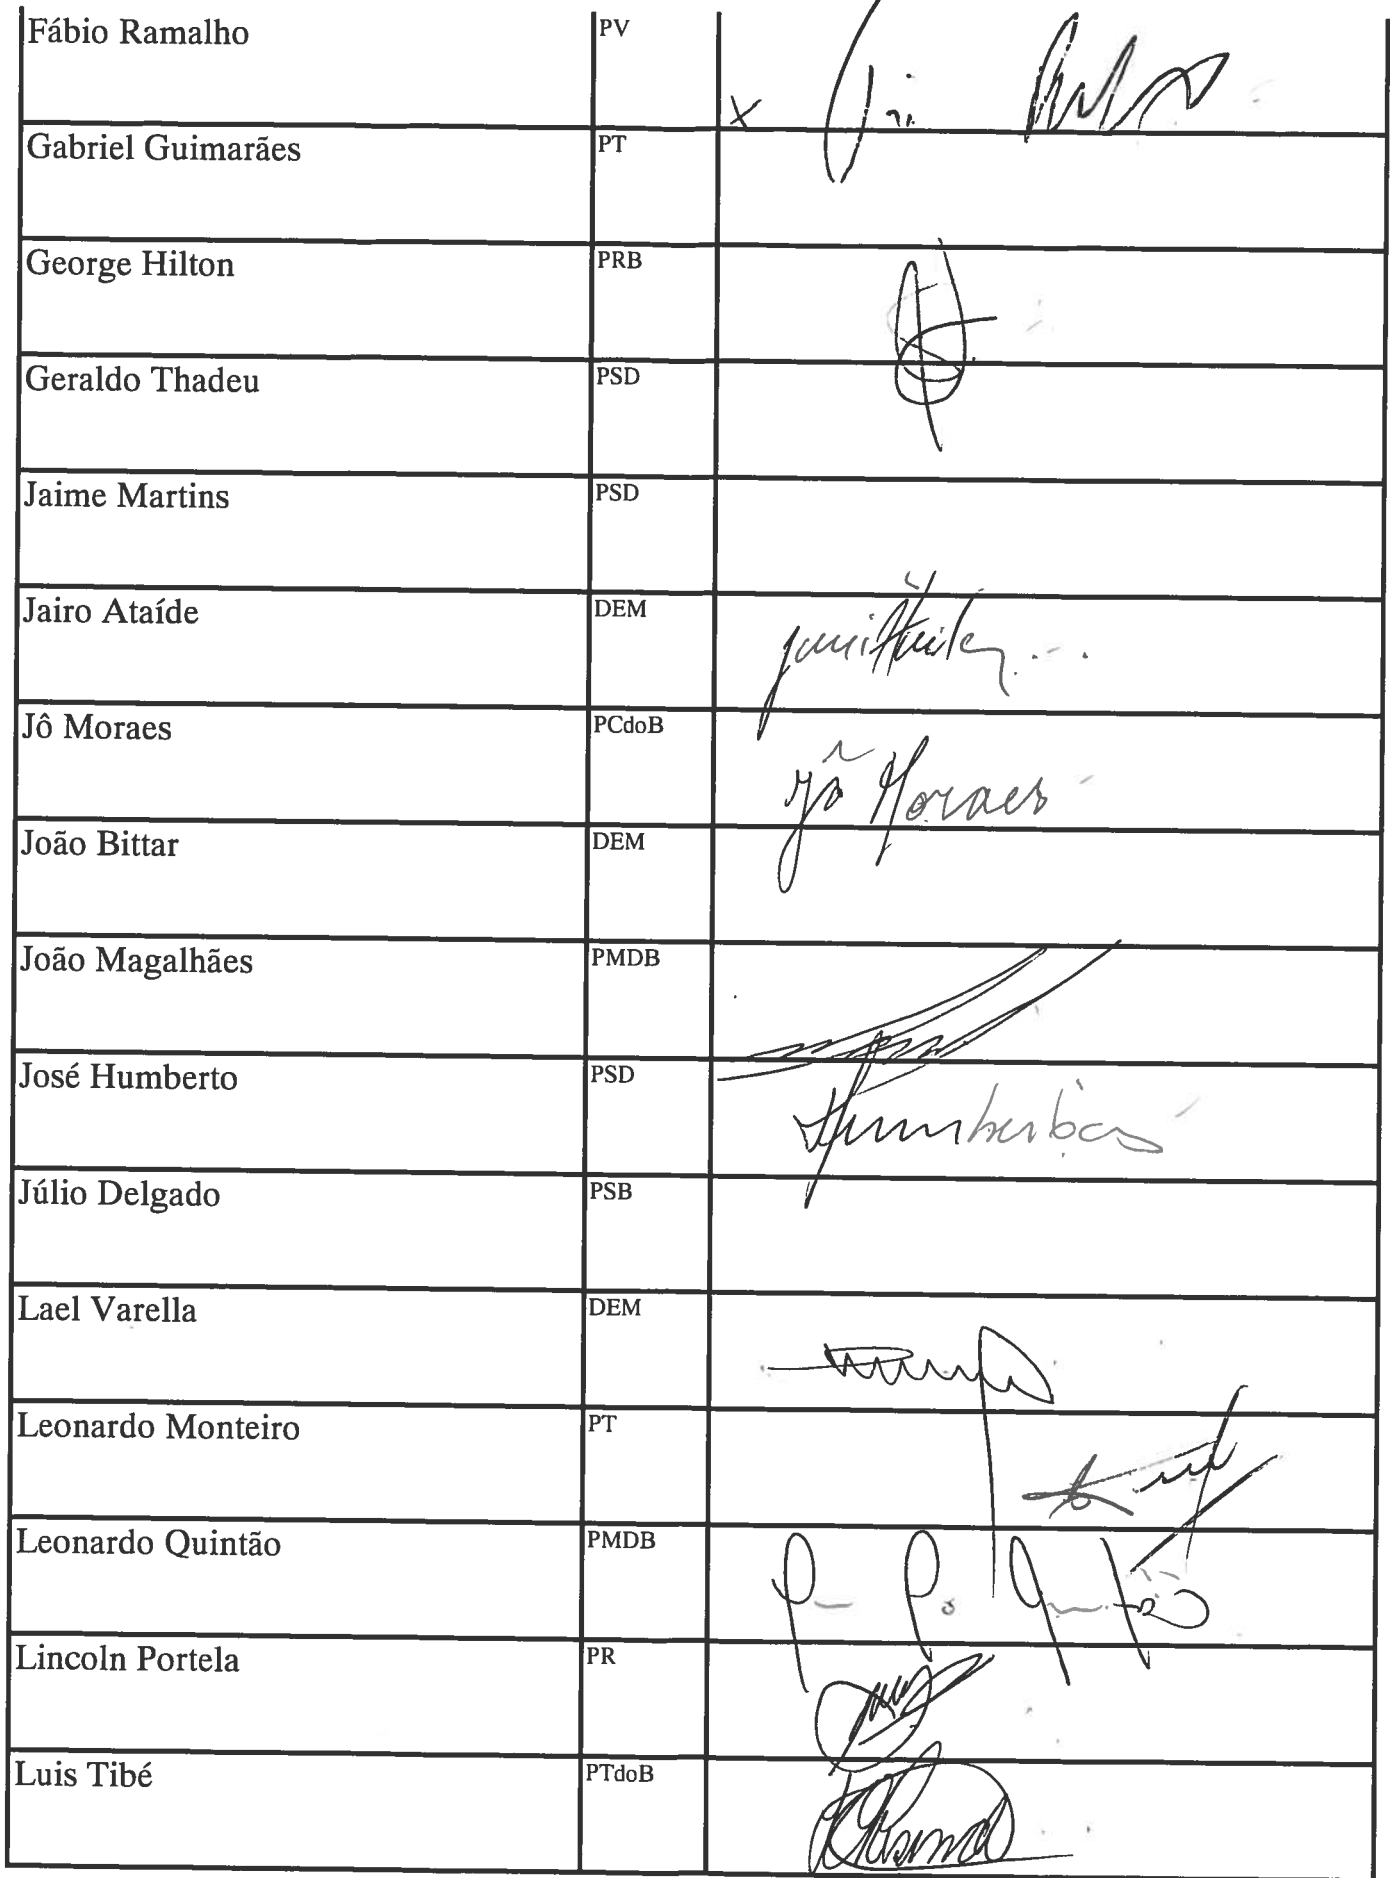 Fábio Ramalho PV
X
Gabriel Guimarães PT
George Hilton PRB
Geraldo Thadeu PSD
Jaime Martins PSD
Jairo Ataíde DEM
Jô Moraes PCdoB Jô Moraes
João Bittar DEM
João Magalhães PMDB
José Humberto PSD
Júlio Delgado PSB
Lael Varella DEM
Leonardo Monteiro PT
Leonardo Quintão PMDB
Lincoln Portela PR
Luis Tibé PTdoB